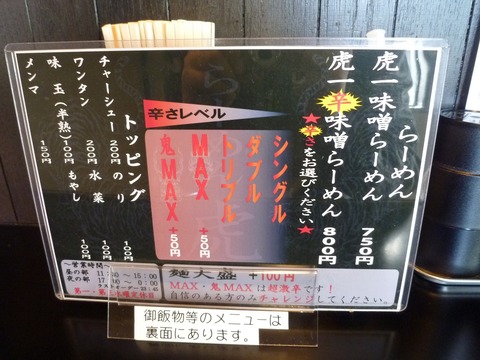 らーめん
虎一味噌らーめん 750円
虎一辛味噌らーめん 800円
★辛さをお選びください★
辛さレベル
シングル
ダブル
トリプル
MAX +50円
鬼MAX +50円
トッピング
チャーシュー 200円
ワンタン 200円
味玉(半熟) 100円
メンマ 100円
のり 100円
水菜 100円
もやし 100円
麺大盛 +100円
MAX・鬼MAXは超激辛です!
自信のある方のみチャレンジしてください。
〜営業時間〜
昼の部 11
15:00
夜の部 17
御飯物等のメニューは
裏面にあります。